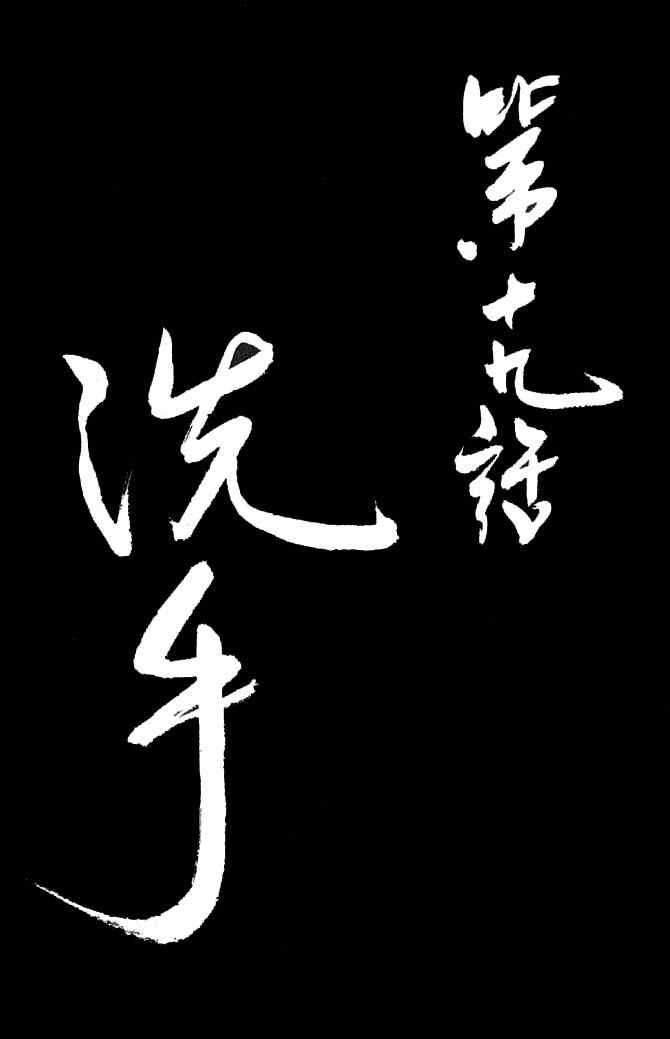 第十九話
洗手